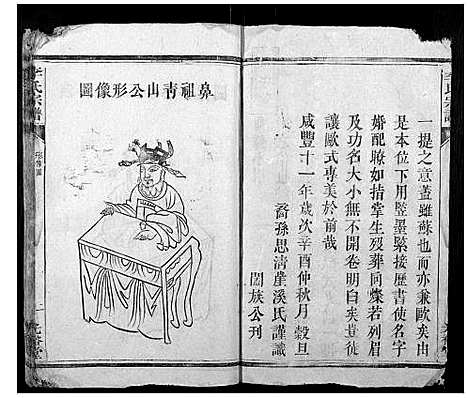 一提之意蓋雖蘇也而亦兼歐矣由
是本位下用監墨緊接歷書使名字
婚配瞭如指掌生歿葬同燦若列眉
及功名大小無不開卷明白矣豈直
讓歐式專美於前哉
咸豐十一年歲次辛酉仲秋月 穀旦
裔孫思清崖溪氏謹識
闔族公刊
鼻祖青山公形像圖
李氏宗譜
形像圖
一